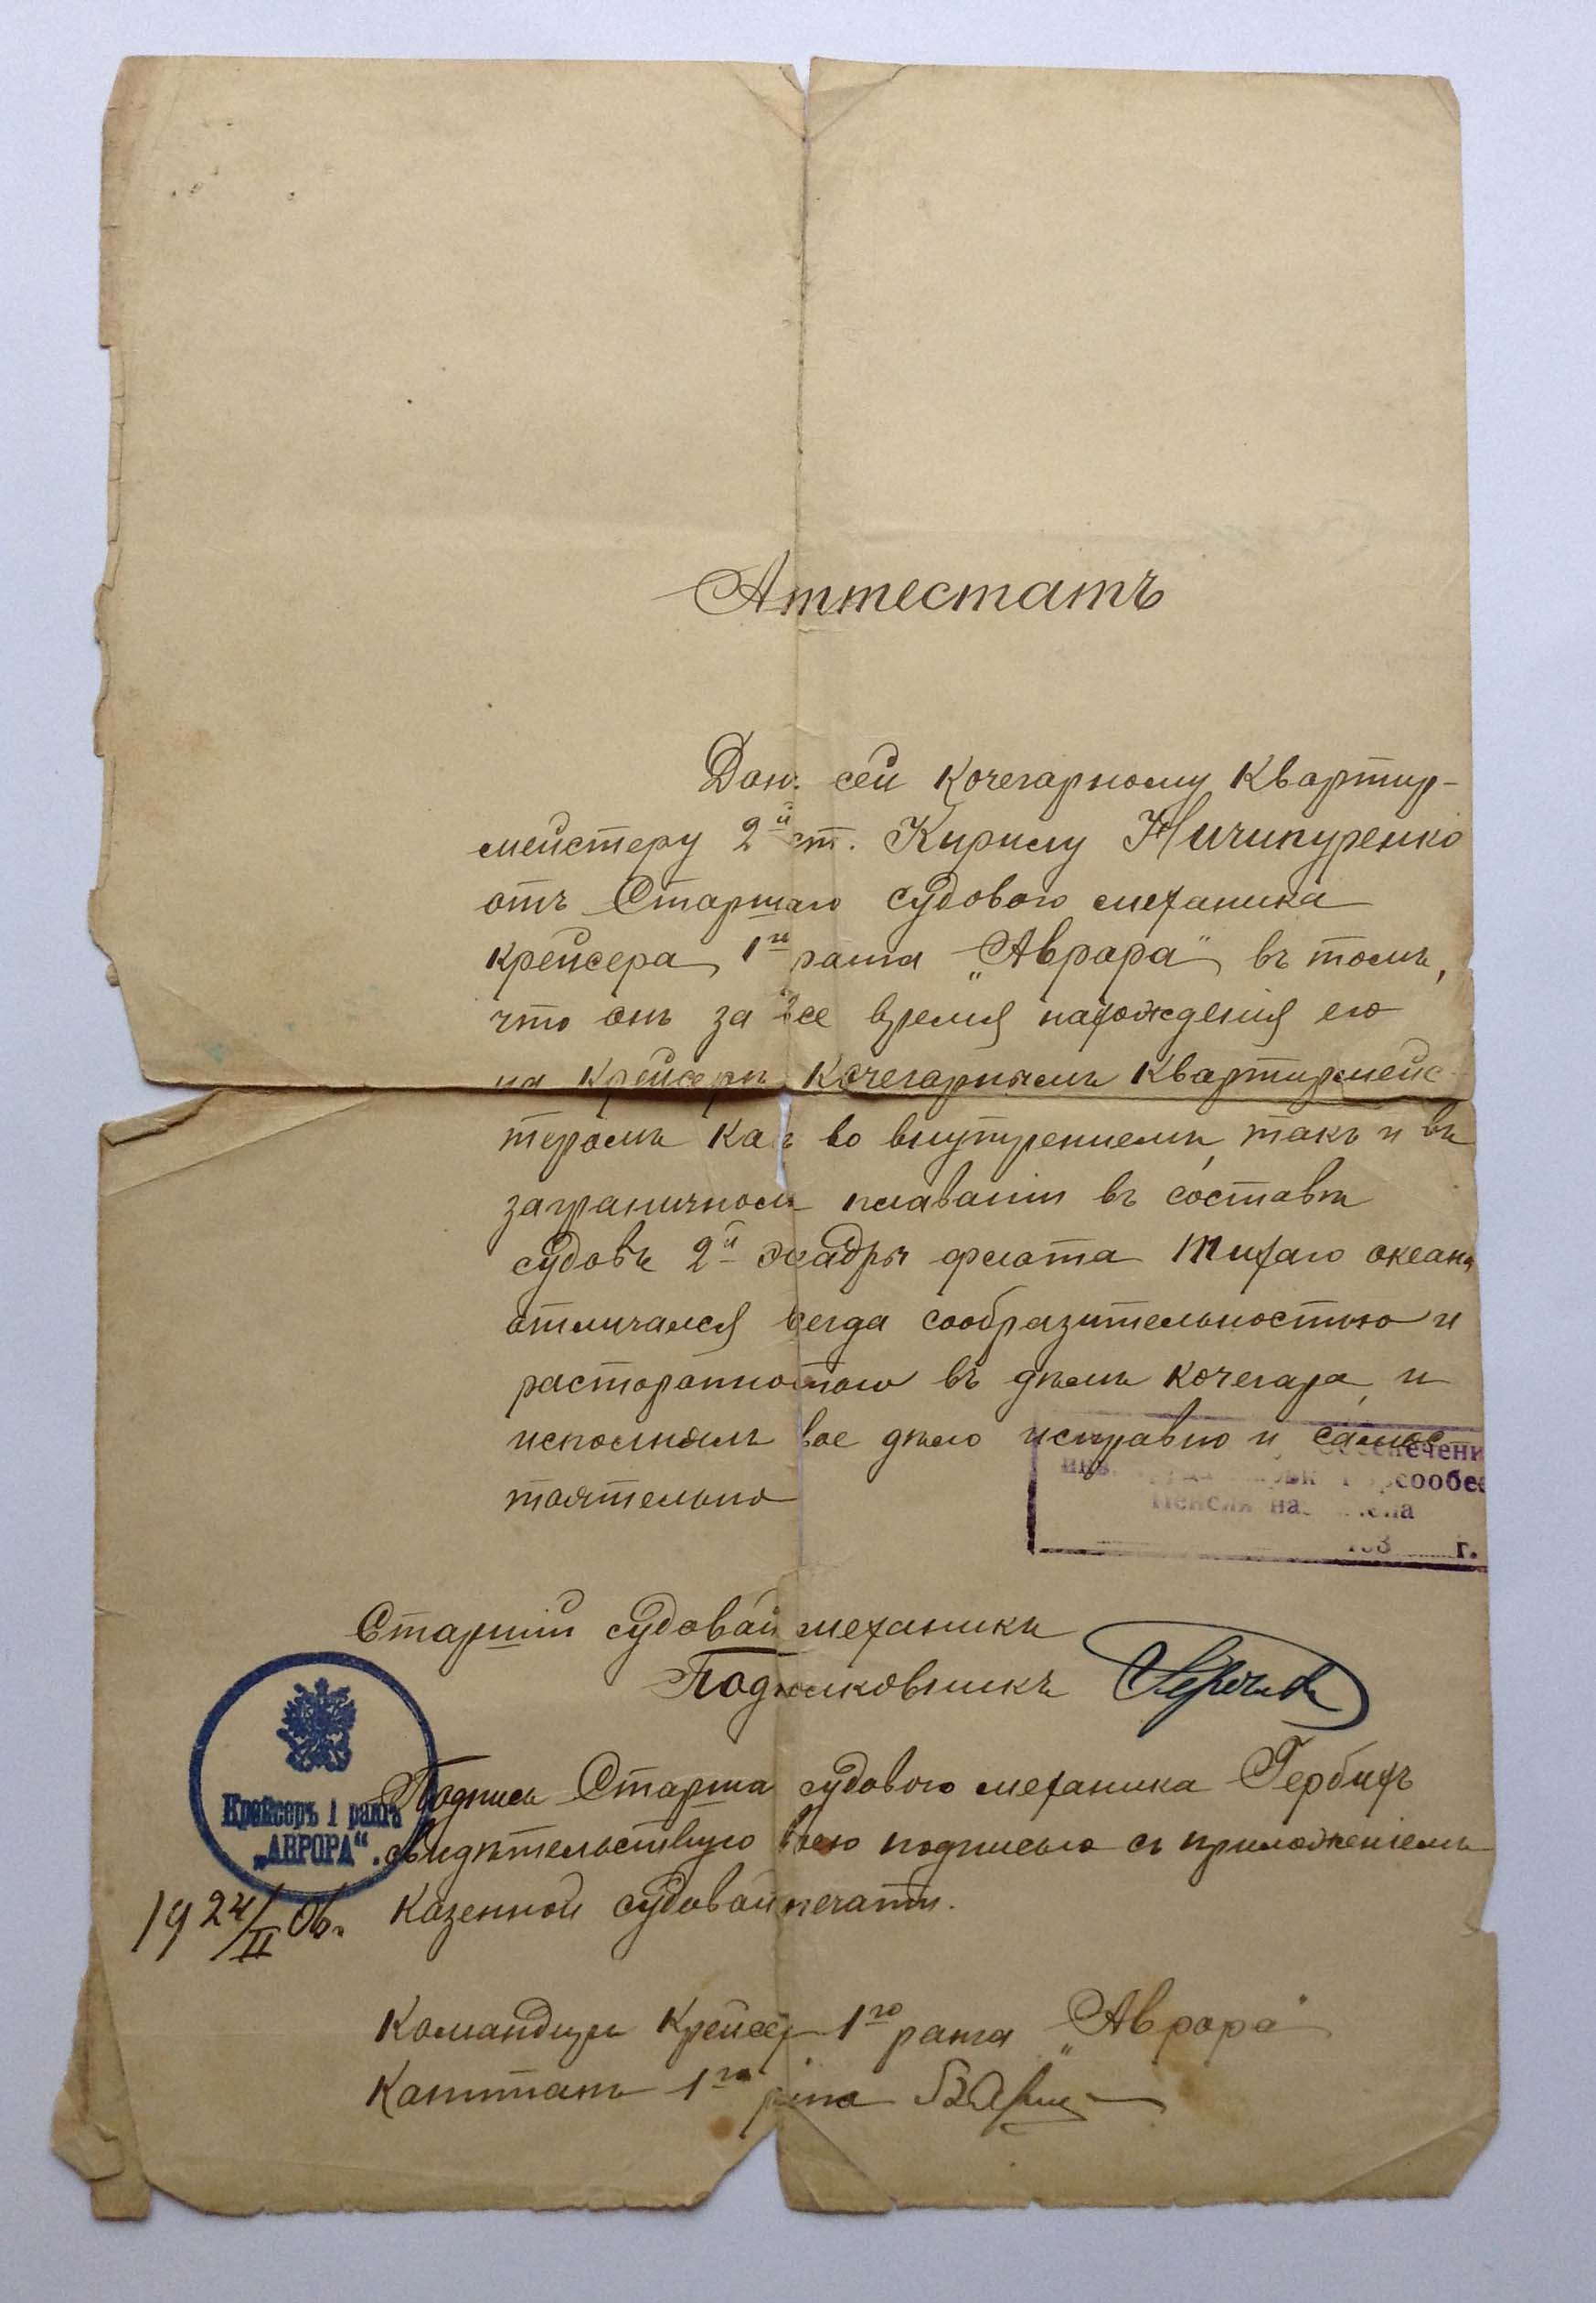 Аттестатъ
Дан. сей Кочегарному Квартир-
мейстеру 2й ст. Кирилу Ничипуренко
отъ Старшаго судового механика
крейсера 1го ранга „Аврора" въ томъ,
что онъ за все время нахожденія его
на крейсерѣ Кочегарнымъ Квартирмейс-
теромъ какъ во внутреннемъ, такъ и въ
заграничномъ плаваніи въ составѣ
судовъ 2й эскадры флота Тихаго океана
отличался всегда сообразительностью и
расторопностью въ дѣлѣ кочегара, и
исполнялъ свое дѣло исправно и самос-
тоятельно
обеспечени
собес
Пенсия назначена
193 г.
Старшій судовой механикъ
Подполковникъ
Крейсеръ 1 ранга
„АВРОРА".
Подпись Старша судового механика Гербихъ
свидѣтельствую свою подписью съ приложеніемъ
казенной судовой печати.
19 24/II 06г.
Командиръ Крейсер 1го ранга „Аврора"
Капитанъ 1го ранга